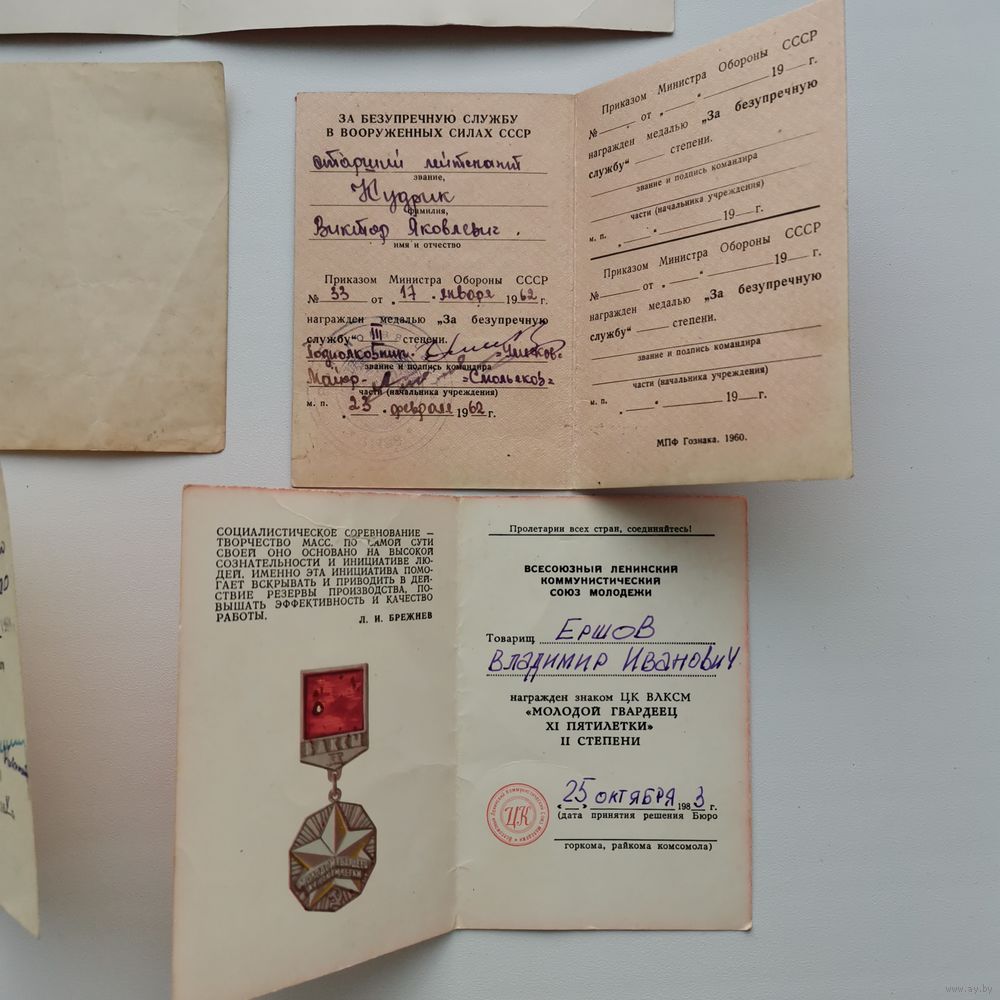 ЗА БЕЗУПРЕЧНУЮ СЛУЖБУ
В ВООРУЖЕННЫХ СИЛАХ СССР
старший лейтенант
звание,
Кудрик
фамилия,
Виктор Яковлевич.
имя и отчество
Приказом Министра Обороны СССР
№ 33 от „17„ января 1962 г.
награжден медалью „За безупречную
службу“ III степени.
Подполковник
звание и подпись командира
Майор - =Смольяков=
части (начальника учреждения)
м. п. „23„ февраля 1962 г.
Приказом Министра Обороны СССР
№ от „ “ 19 г.
награжден медалью „За безупречную
службу“ степени.
звание и подпись командира
части (начальника учреждения)
м. п. „ “ 19 г.
Приказом Министра Обороны СССР
№ от „ “ 19 г.
награжден медалью „За безупречную
службу“ степени.
звание и подпись командира
части (начальника учреждения)
м. п. „ “ 19 г.
МПФ Гознака. 1960.
СОЦИАЛИСТИЧЕСКОЕ СОРЕВНОВАНИЕ —
ТВОРЧЕСТВО МАСС. ПО САМОЙ СУТИ
СВОЕЙ ОНО ОСНОВАНО НА ВЫСОКОЙ
СОЗНАТЕЛЬНОСТИ И ИНИЦИАТИВЕ ЛЮ-
ДЕЙ. ИМЕННО ЭТА ИНИЦИАТИВА ПОМО-
ГАЕТ ВСКРЫВАТЬ И ПРИВОДИТЬ В ДЕЙ-
СТВИЕ РЕЗЕРВЫ ПРОИЗВОДСТВА, ПО-
ВЫШАТЬ ЭФФЕКТИВНОСТЬ И КАЧЕСТВО
РАБОТЫ.
Л. И. БРЕЖНЕВ
ВЛКСМ
II
МОЛОДОЙ ГВАРДЕЕЦ
XI ПЯТИЛЕТКИ
Пролетарии всех стран, соединяйтесь!
ВСЕСОЮЗНЫЙ ЛЕНИНСКИЙ
КОММУНИСТИЧЕСКИЙ
СОЮЗ МОЛОДЕЖИ
Товарищ ЕРШОВ
ВЛАДИМИР ИВАНОВИЧ
награжден знаком ЦК ВЛКСМ
«МОЛОДОЙ ГВАРДЕЕЦ
XI ПЯТИЛЕТКИ»
II СТЕПЕНИ
ЦК
«25» ОКТЯБРЯ 1983 г.
(дата принятия решения Бюро
горкома, райкома комсомола)
www.ay.by